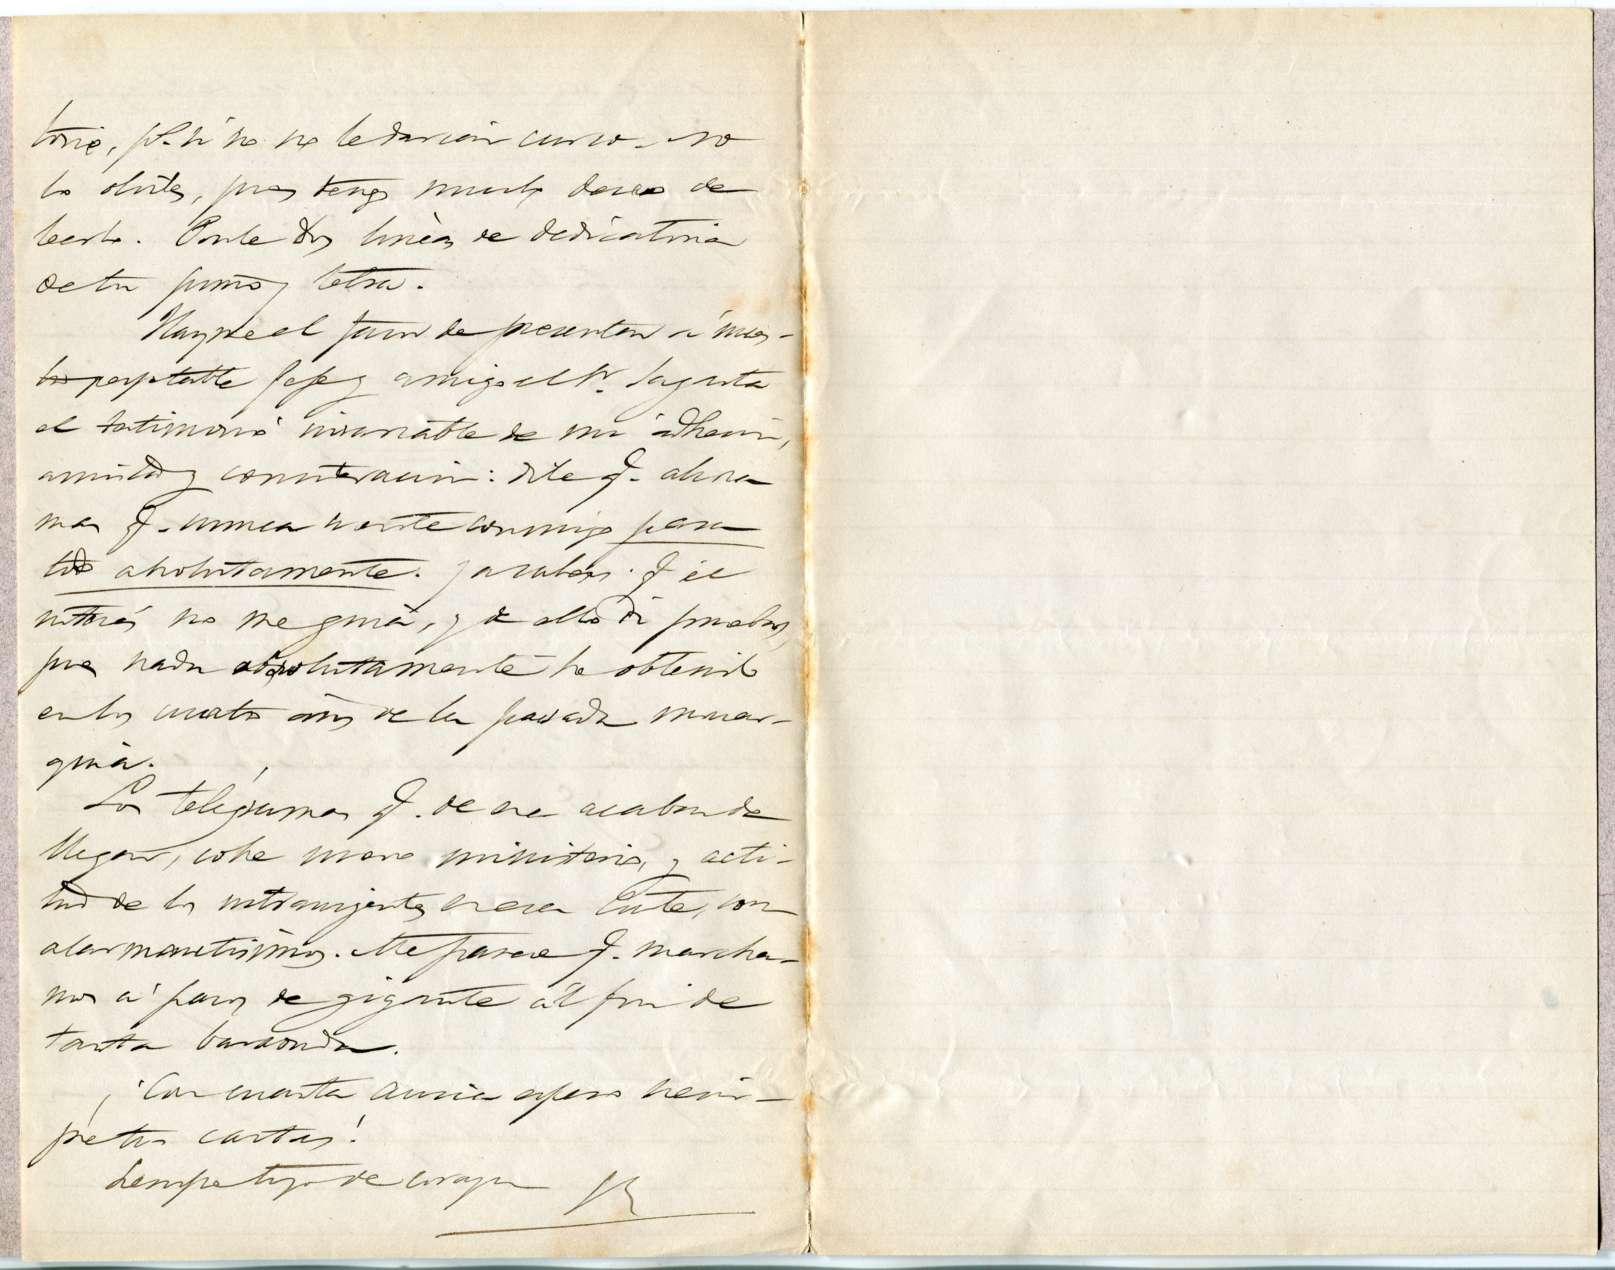 torio, pq. si no no le darian curso. no
lo olvides, pues tengo mucho deseo de
leerlo. Ponle dos lineas de dedicatoria
de tu puño y letra.
Hazme el favor de presentar á nues-
tro respetable Jefe y amigo el Sr. Sagasta
el testimonio invariable de mi adhesion,
amistad y consideracion: dile q. ahora
mas q. nunca cuente conmigo para
todo absolutamente. Ya sabes q. el
interés no me guia, y de ello dí pruebas,
pues nada absolutamente he obtenido
en los cuatro años de la pasada monar-
quia.
Los telégramas q. de esa acaban de
llegar, sobre nuevo ministerio, y acti-
tud de los intransigentes en esa Corte, son
alarmantisimos. Me parece q. marcha-
mos á pasos de gigante al fin de
tanta baraonda.
¡Con cuanta ansia espero siem-
pre tus cartas!
Siempre tuyo de corazon